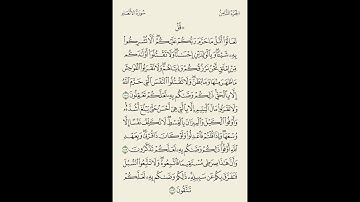 الجزء الثامن سورة الأنعام
۞ قُلْ
تَعَالَوْا أَتْلُ مَا حَرَّمَ رَبُّكُمْ عَلَيْكُمْ أَلَّا تُشْرِكُوا بِهِ
شَيْئًا وَبِالْوَالِدَيْنِ إِحْسَانًا وَلَا تَقْتُلُوا أَوْلَادَكُم
مِّنْ إِمْلَاقٍ نَّحْنُ نَرْزُقُكُمْ وَإِيَّاهُمْ وَلَا تَقْرَبُوا الْفَوَاحِشَ
مَا ظَهَرَ مِنْهَا وَمَا بَطَنَ وَلَا تَقْتُلُوا النَّفْسَ الَّتِي حَرَّمَ اللَّهُ
إِلَّا بِالْحَقِّ ذَٰلِكُمْ وَصَّاكُم بِهِ لَعَلَّكُمْ تَعْقِلُونَ ١٥١
وَلَا تَقْرَبُوا مَالَ الْيَتِيمِ إِلَّا بِالَّتِي هِيَ أَحْسَنُ حَتَّىٰ يَبْلُغَ أَشُدَّهُ
وَأَوْفُوا الْكَيْلَ وَالْمِيزَانَ بِالْقِسْطِ لَا نُكَلِّفُ نَفْسًا إِلَّا
وُسْعَهَا وَإِذَا قُلْتُمْ فَاعْدِلُوا وَلَوْ كَانَ ذَا قُرْبَىٰ وَبِعَهْدِ
اللَّهِ أَوْفُوا ذَٰلِكُمْ وَصَّاكُم بِهِ لَعَلَّكُمْ تَذَكَّرُونَ ١٥٢
وَأَنَّ هَٰذَا صِرَاطِي مُسْتَقِيمًا فَاتَّبِعُوهُ وَلَا تَتَّبِعُوا السُّبُلَ
فَتَفَرَّقَ بِكُمْ عَن سَبِيلِهِ ذَٰلِكُمْ وَصَّاكُم بِهِ لَعَلَّكُمْ
تَتَّقُونَ ١٥٣